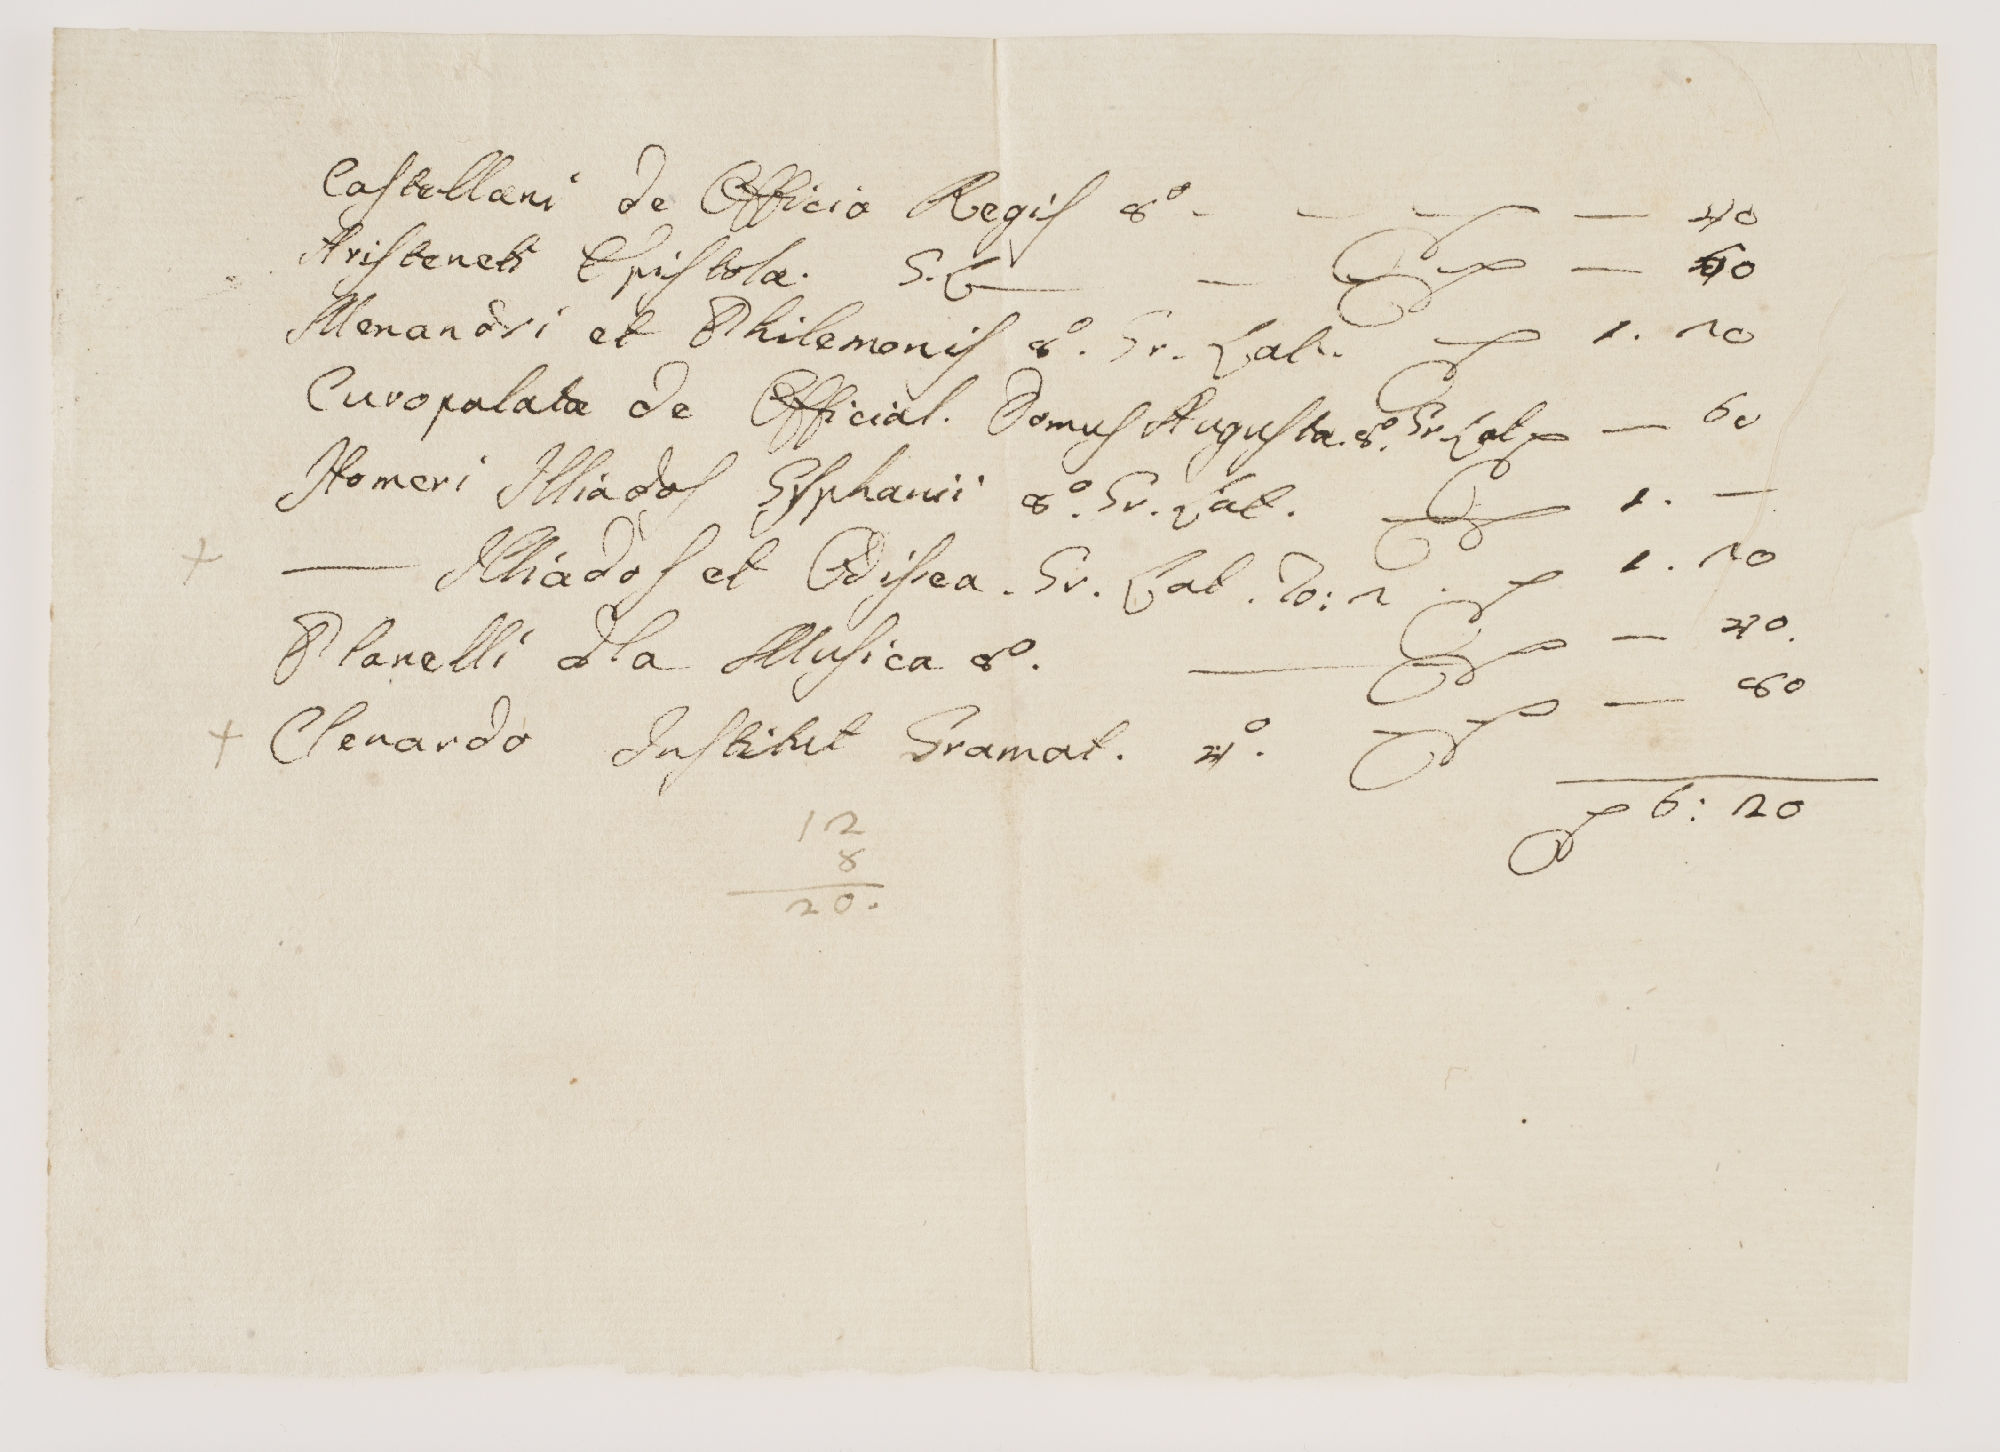 Castellani de Officio Regis 8º - — — — 40
Aristeneti Epistolæ. G.L — — — 60
Menandri et Philemonis 8º. Gr. Lat. 1. 20
Curopalatæ de Official. Domus Augustæ. 8º. Gr. Lat — 60
Homeri Illiados 8º. Gr. Lat. 1. —
+ — Illiados et Odissea. Gr. Lat. To: 2. 1. 20
Planelli dla Musica 8º. — — 40.
+ Clenardo Institut Gramat. 4º. — 80
6: 20
12
8
20.